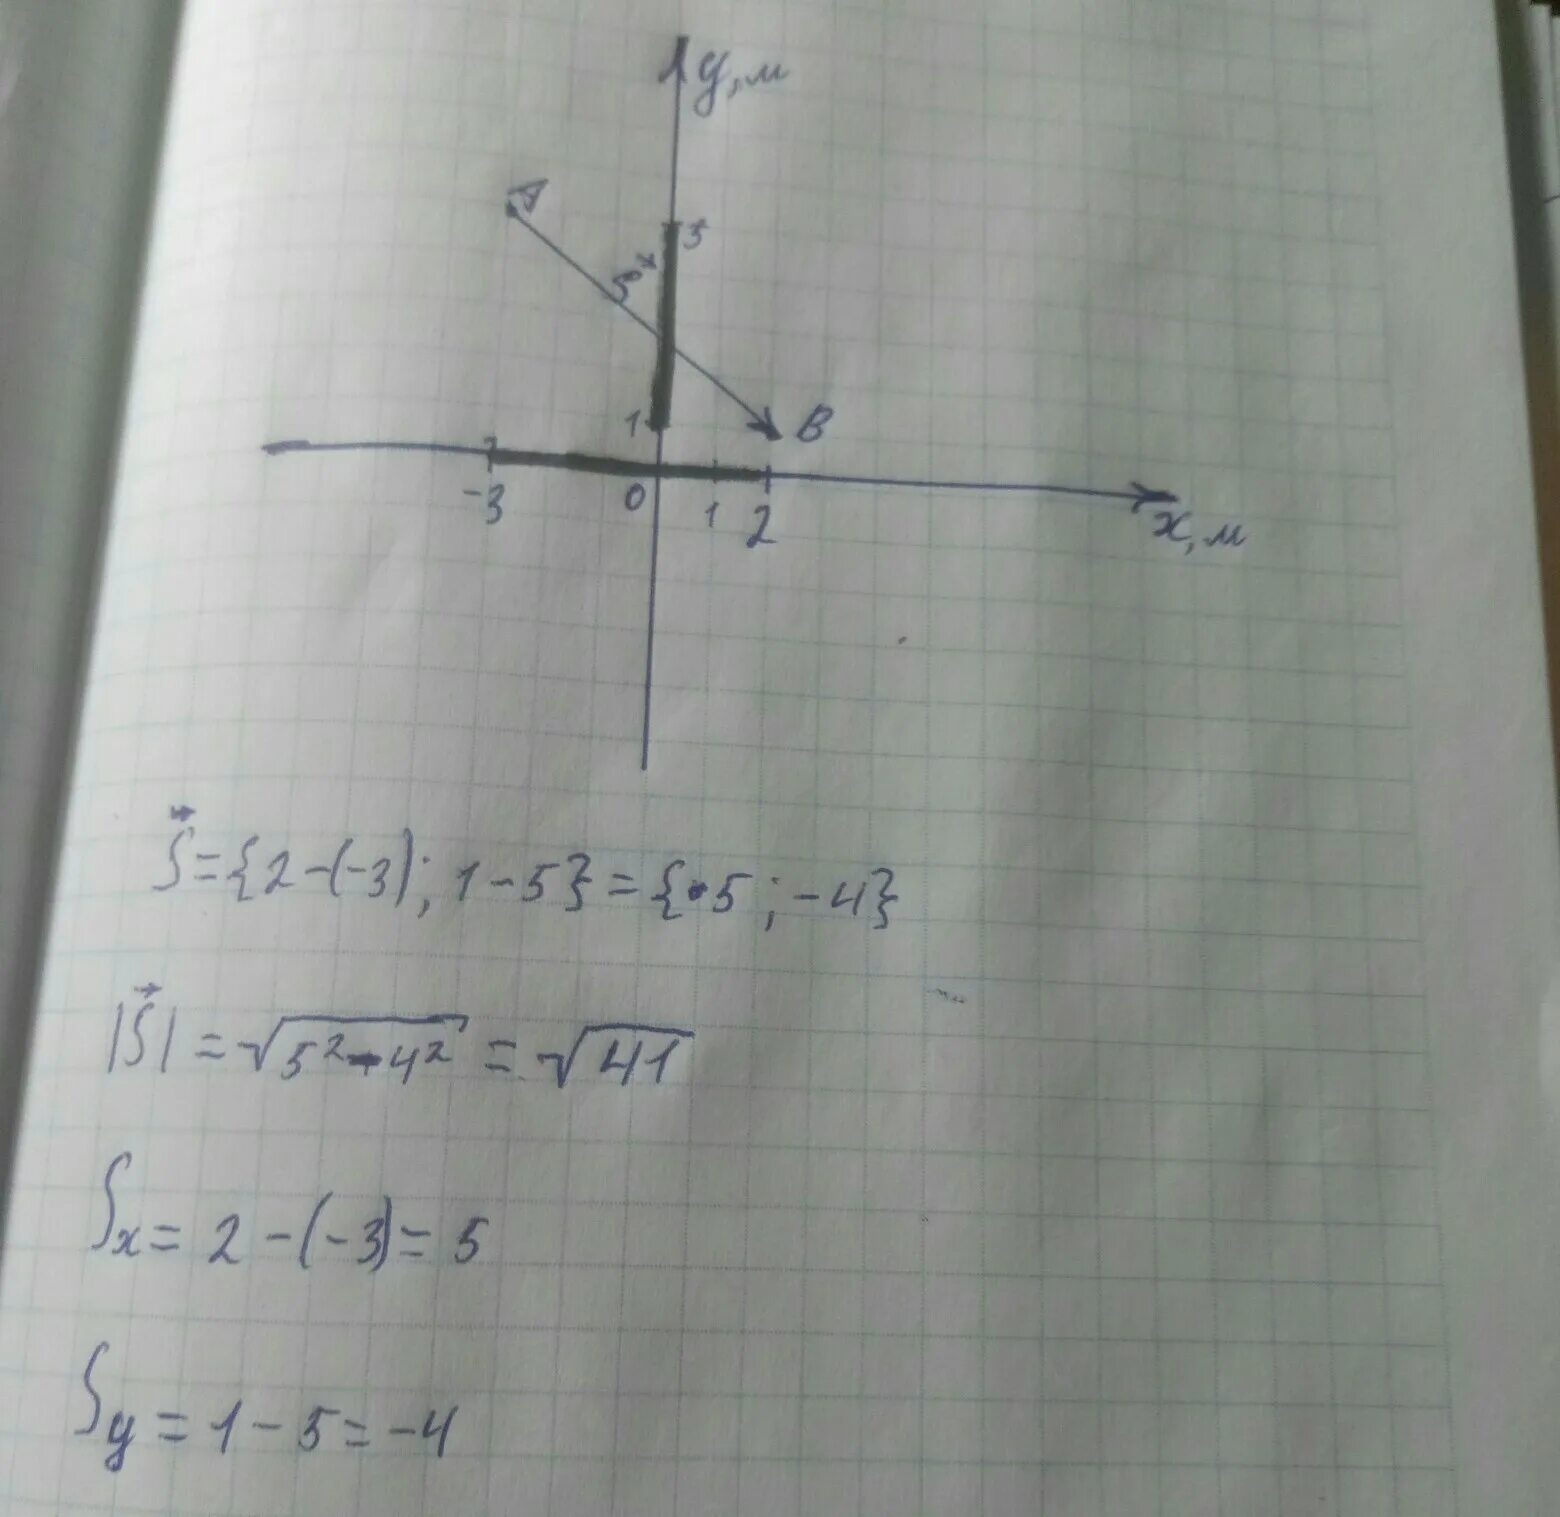 y, м
A
5
S
1
B
-3 0 1 2
x, м
S⃗ = {2-(-3); 1-5} = {5; -4}
|S⃗| = √(5²+4²) = √41
Sx = 2-(-3) = 5
Sy = 1-5 = -4